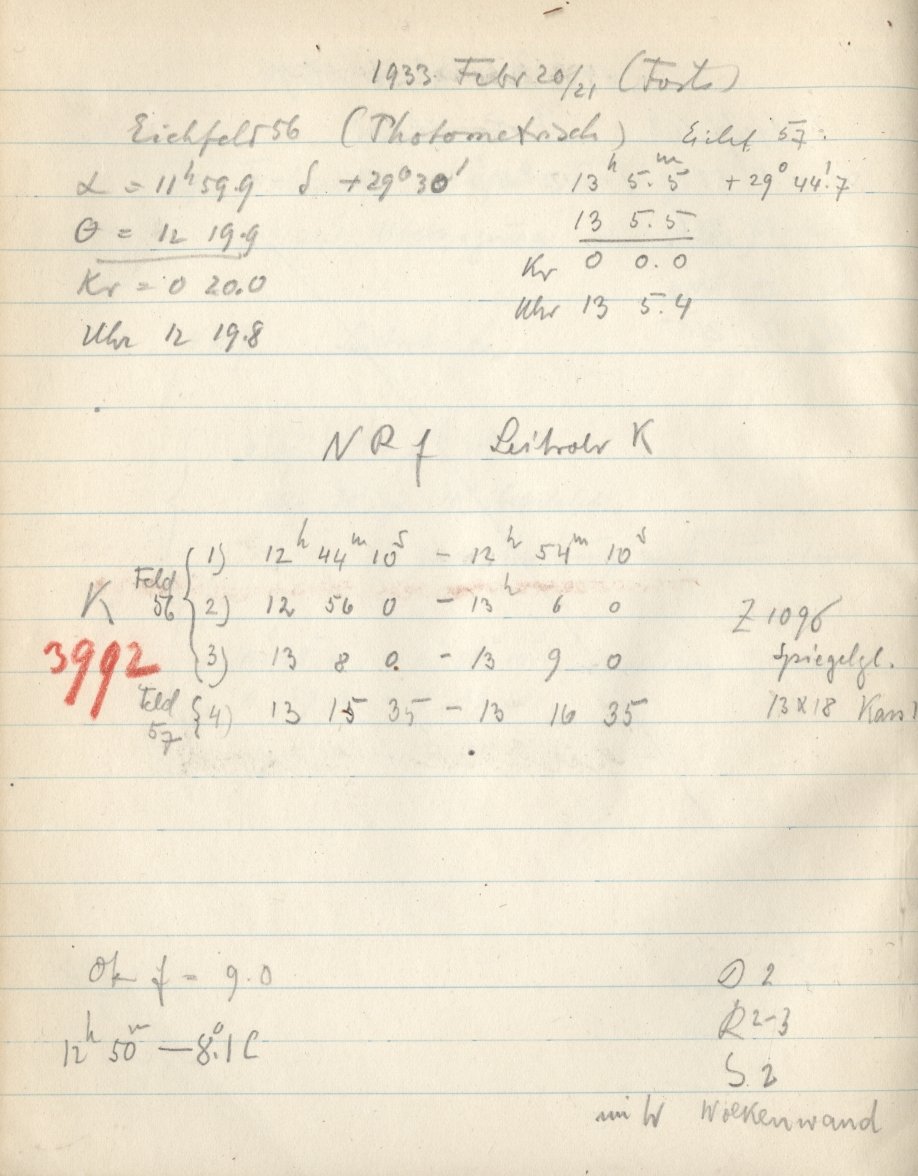 1933 Febr 20/21 (Forts)
Eichfeld 56 (Photometrisch) Eichf 57.
α = 11h 59.9 δ +29° 30' 13h 5.m5 +29° 44.'7
θ = 12 19.9 13 5.5
Kr = 0 20.0 Kr 0 0.0
Uhr 12 19.8 Uhr 13 5.4
NRf Leitrohr K
1) 12h 44m 10s - 12h 54m 10s
K Feld 56 2) 12 56 0 - 13h 6 0 Z 1096
3992 3) 13 8 0 - 13 9 0 Spiegelgl.
Feld 57 4) 13 15 35 - 13 16 35 13x18 Kass
Ok f = 9.0 D 2
12h 50m — 8.°1 C R 2-3
S 2
im W Wolkenwand